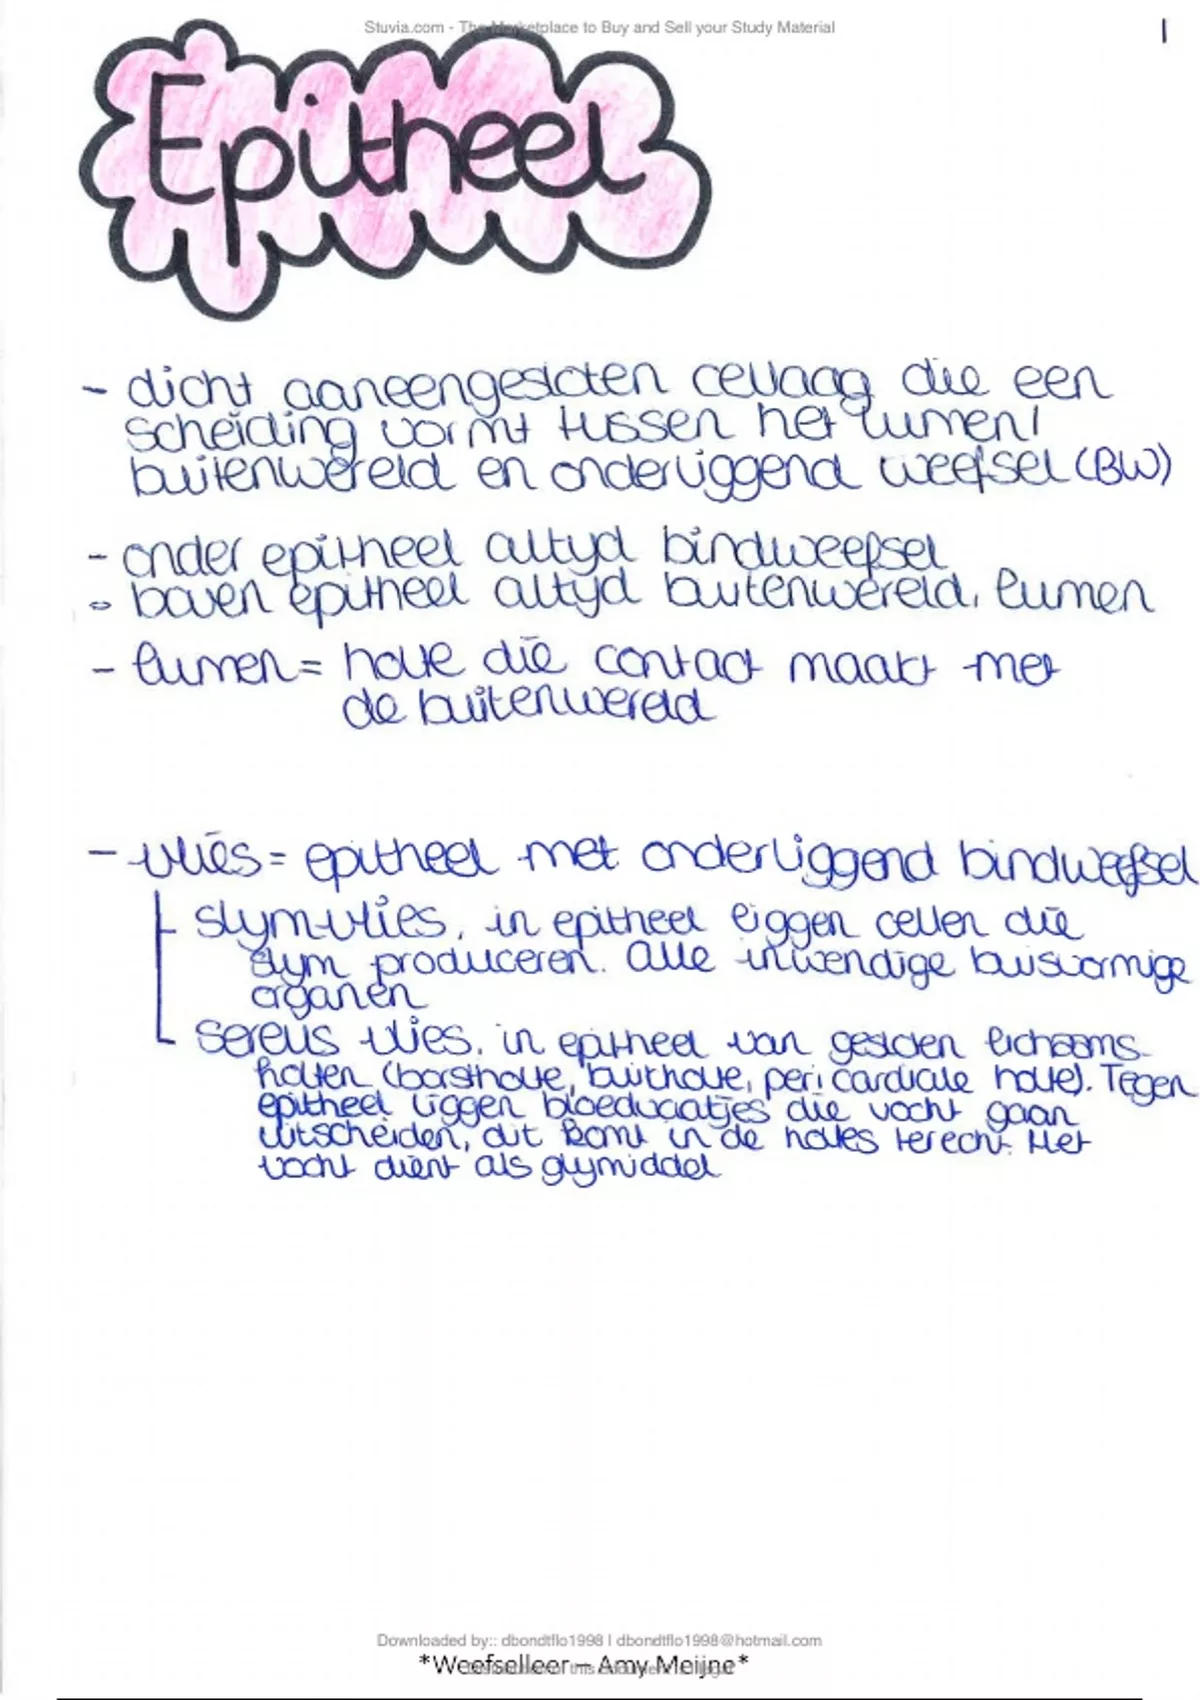 Stuvia.com - The Marketplace to Buy and Sell your Study Material
1
Epitheel
- dicht aaneengesloten cellaag die een
scheiding vormt tussen het lumen/
buitenwereld en onderliggend weefsel (BW)
- onder epitheel altyd bindweefsel
- boven epitheel altyd buitenwereld, lumen
- lumen = holte die contact maakt met
de buitenwereld
- vlies = epitheel met onderliggend bindweefsel
slym-vlies, in epitheel liggen cellen die
slym produceren. Alle inwendige buisvormige
organen
sereus vlies, in epitheel van gesloten lichaams-
holten (borstholte, buikholte, peri cardiale holte). Tegen
epitheel liggen bloedvaatjes die vocht gaan
uitscheiden, dit komt in de holtes terecht. Het
vocht dient als glymiddel
Downloaded by:: dbondtflo1998 | dbondtflo1998@hotmail.com
*Weefselleer – Amy Meijne*